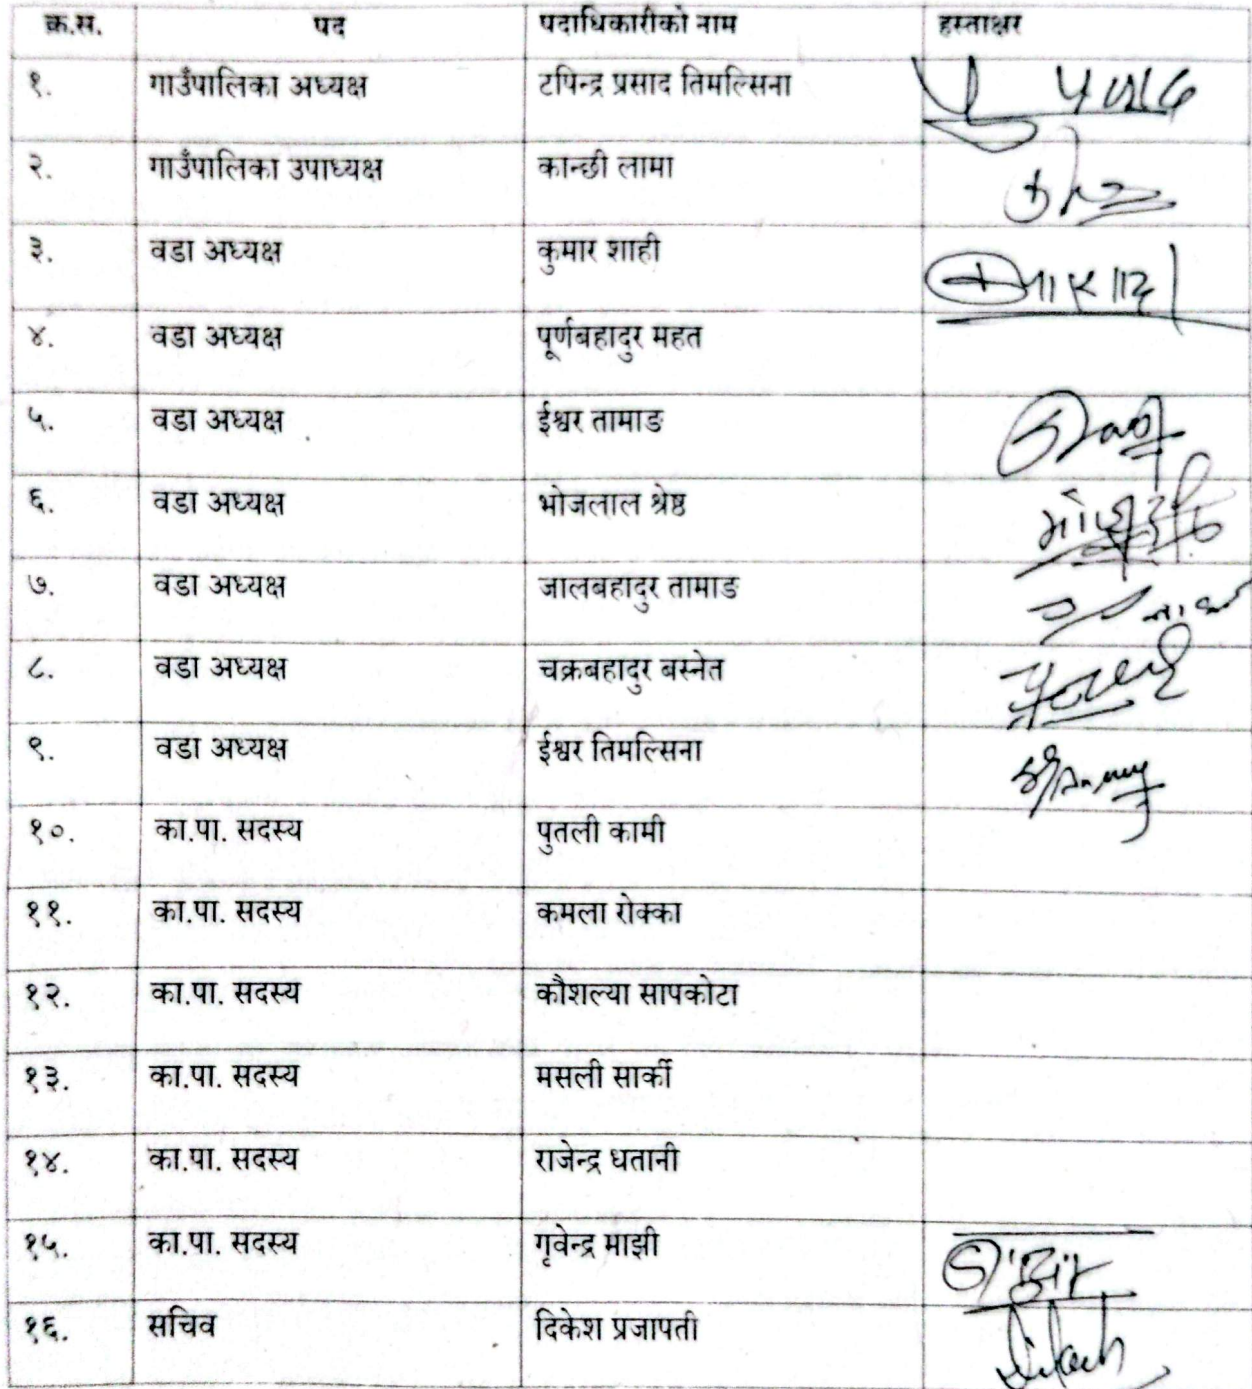 क्र.स. पद पदाधिकारीको नाम हस्ताक्षर
१. गाउँपालिका अध्यक्ष टपिन्द्र प्रसाद तिमल्सिना
२. गाउँपालिका उपाध्यक्ष कान्छी लामा
३. वडा अध्यक्ष कुमार शाही
४. वडा अध्यक्ष पूर्णबहादुर महत
५. वडा अध्यक्ष ईश्वर तामाङ
६. वडा अध्यक्ष भोजलाल श्रेष्ठ
७. वडा अध्यक्ष जालबहादुर तामाङ
८. वडा अध्यक्ष चक्रबहादुर बस्नेत
९. वडा अध्यक्ष ईश्वर तिमल्सिना
१०. का.पा. सदस्य पुतली कामी
११. का.पा. सदस्य कमला रोक्का
१२. का.पा. सदस्य कौशल्या सापकोटा
१३. का.पा. सदस्य मसली सार्की
१४. का.पा. सदस्य राजेन्द्र धतानी
१५. का.पा. सदस्य गृवेन्द्र माझी
१६. सचिव दिकेश प्रजापती